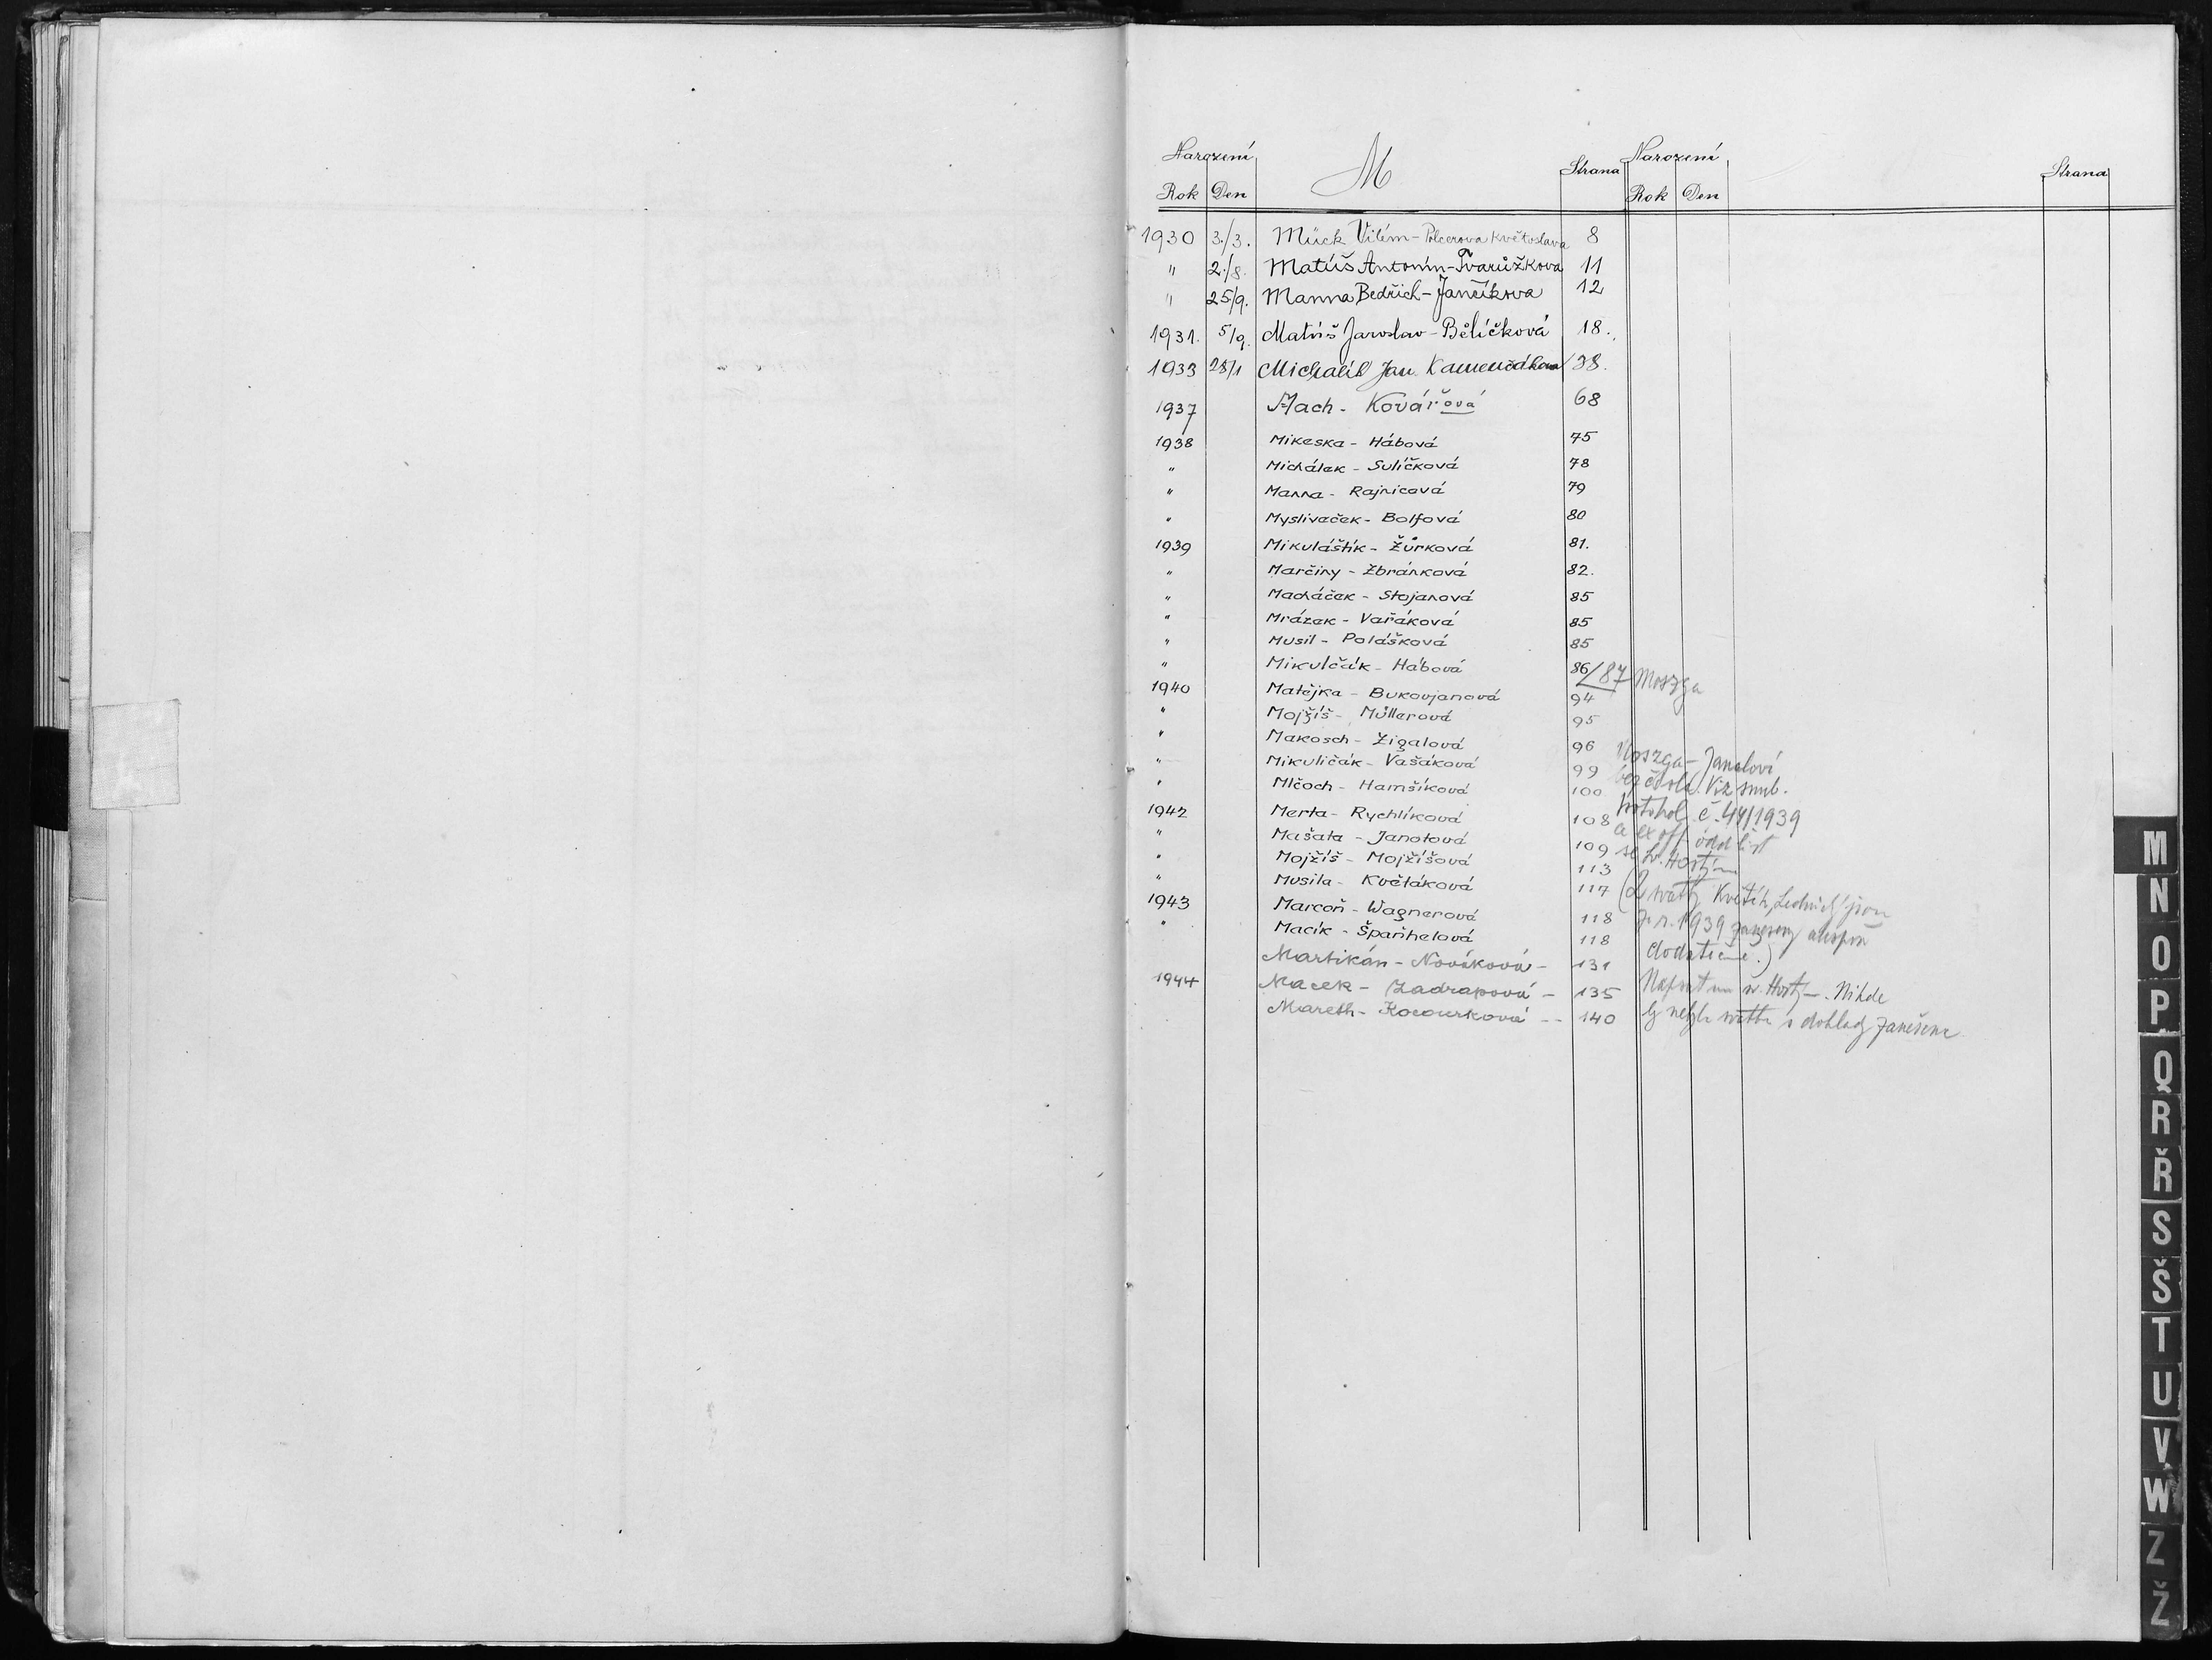 Narození M Strana Narození Strana
Rok Den Rok Den
1930 3./3. Mück Vilém - Polcerova Květoslava 8
" 2./8. Matúš Antonín - Tvarůžkova 11
" 25/9. Manna Bedřich - Jančíkova 12
1931. 5/9. Matúš Jaroslav - Běličková 18.
1933 28/1 Michalík Jan 38.
1937 Mach - Kovářová 68
1938 Mikeska - Hábová 75
" Michálek - Sulíčková 78
" Manna - Rajnicová 79
" Myslivaček - Bolfová 80
1939 Mikuláštík - Žůrková 81.
" Marčiny - Zbránková 82.
" Macháček - Stojanová 85
" Mrázek - Vařáková 85
" Musil - Polášková 85
" Mikulčák - Hábová 86/87 Moszga
1940 Matějka - Bukovjanová 94
" Mojžíš - Müllerová 95
" Makosch - Zigalová 96
" Mikuličák - Vašáková 99
" Mlčoch - Hamšíková 100
1942 Merta - Rychlíková 108
" Mašata - Janotová 109
" Mojžíš - Mojžíšová 113
" Musila - Květáková 117
1943 Marcoň - Wagnerová 118
" Macík - Španhelová 118
Martikán - Nováková - 131
1944 Macek - Zadrapová - 135
Mareth - Kocourková -- 140
Moszga - Janalovi
bez čísla. Viz snub.
protokol č. 44/1939
a ex off odd list
se sv. Hostýna
r. 1939 zaneseny alespoň
dodatečně.)
sv. Host - . Nikde
s doklady zanešena
M
N
O
P
Q
R
Ř
S
Š
T
U
V
W
Z
Ž